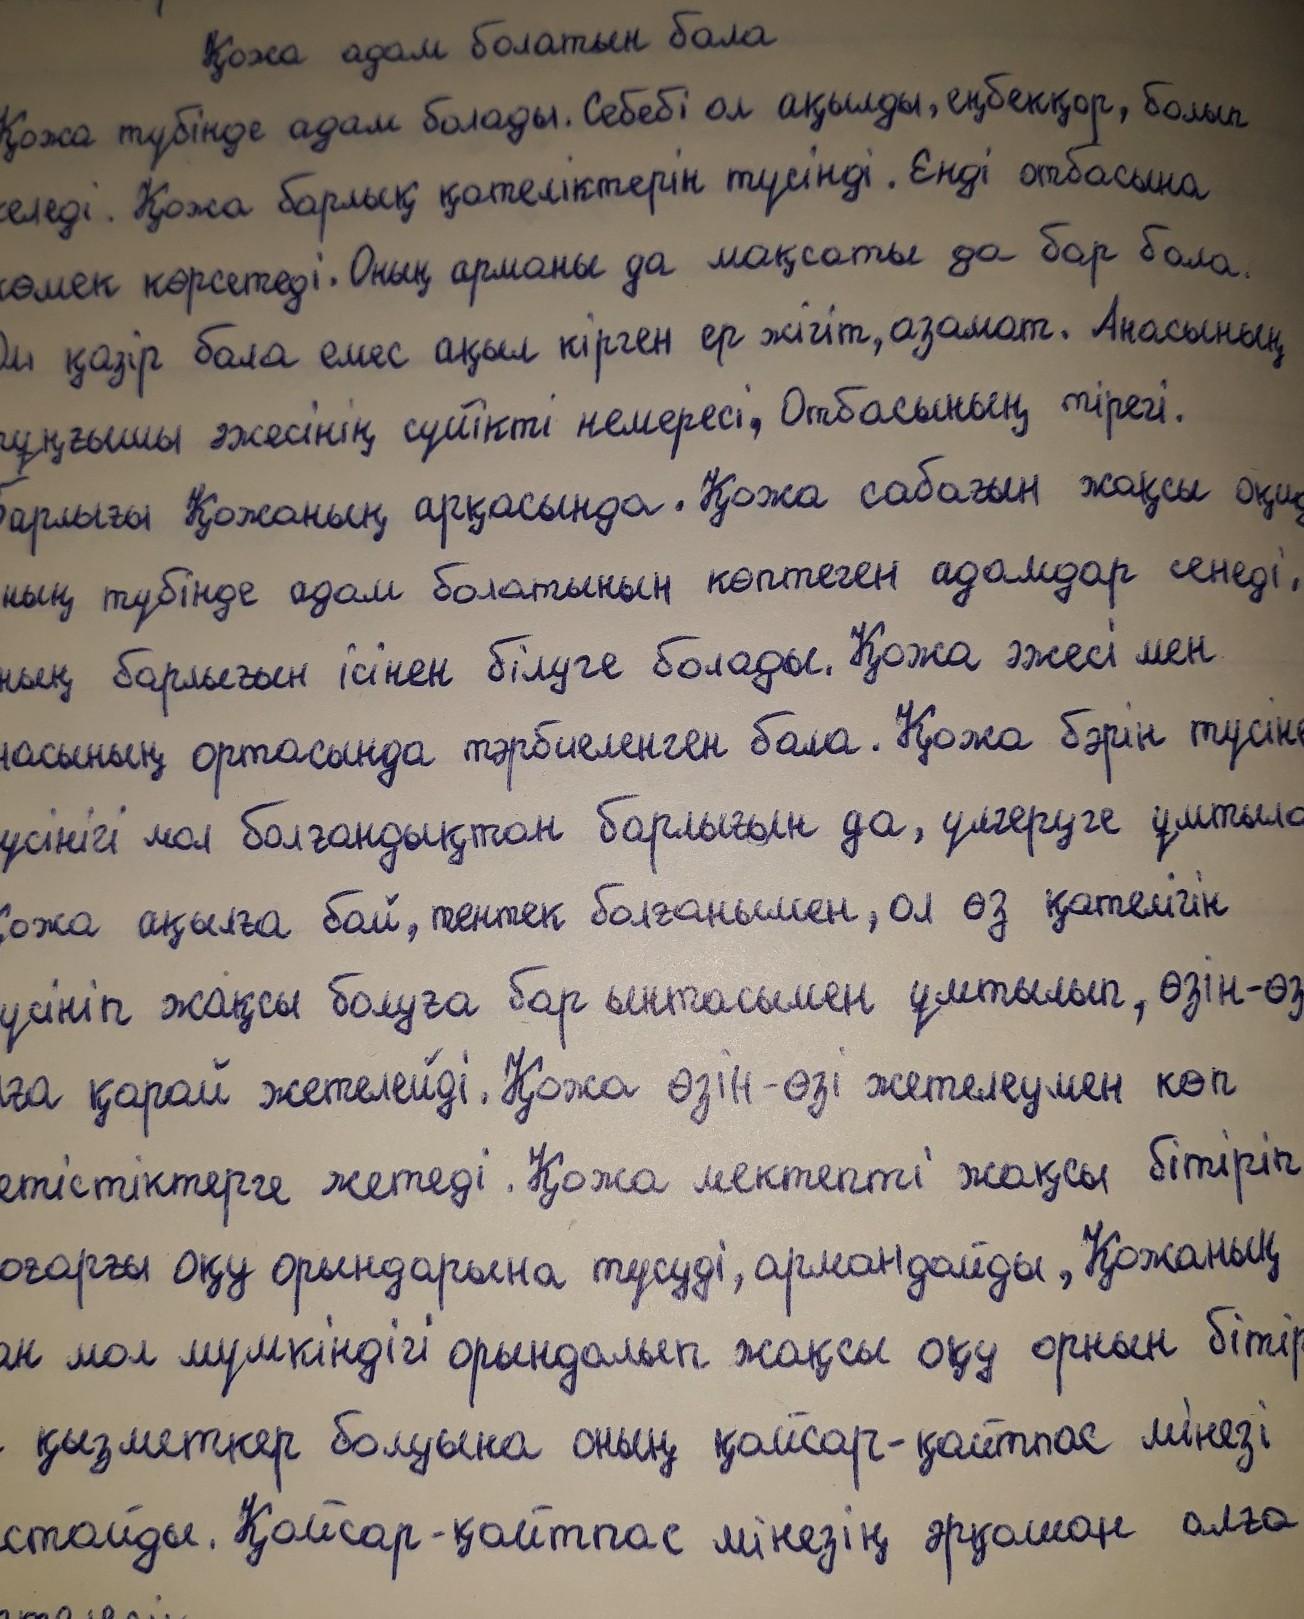 Қожа адам болатын бала
Қожа түбінде адам болады. Себебі ол ақылды, еңбекқор, болып
келеді. Қожа барлық қателіктерін түсінді. Енді отбасына
көмек көрсетеді. Оның арманы да мақсаты да бар бала.
Ол қазір бала емес ақыл кірген ер жігіт, азамат. Анасының
тұңғышы әжесінің сүйікті немересі, Отбасының тірегі.
Барлығы Қожаның арқасында. Қожа сабағын жақсы оқид
ның түбінде адам болатынын көптеген адамдар сенеді,
ның барлығын ісінен білуге болады. Қожа әжесі мен
насының ортасында тәрбиеленген бала. Қожа бәрін түсіне
үсінігі мол болғандықтан барлығын да, үлгеруге ұмтыла
Қожа ақылға бай, тентек болғанымен, ол өз қателігін
үсініп жақсы болуға бар ынтасымен ұмтылып, өзін-өз
лға қарай жетелейді. Қожа өзін-өзі жетелеумен көп
етістіктерге жетеді. Қожа мектепті жақсы бітіріп
оғарғы оқу орындарына түсуді, армандайды, Қожаның
ан мол мүмкіндігі орындалып жақсы оқу орнын бітір
қызметкер болуына оның қайсар-қайтпас мінезі
стайды. Қайсар-қайтпас мінезің әрқашан алға